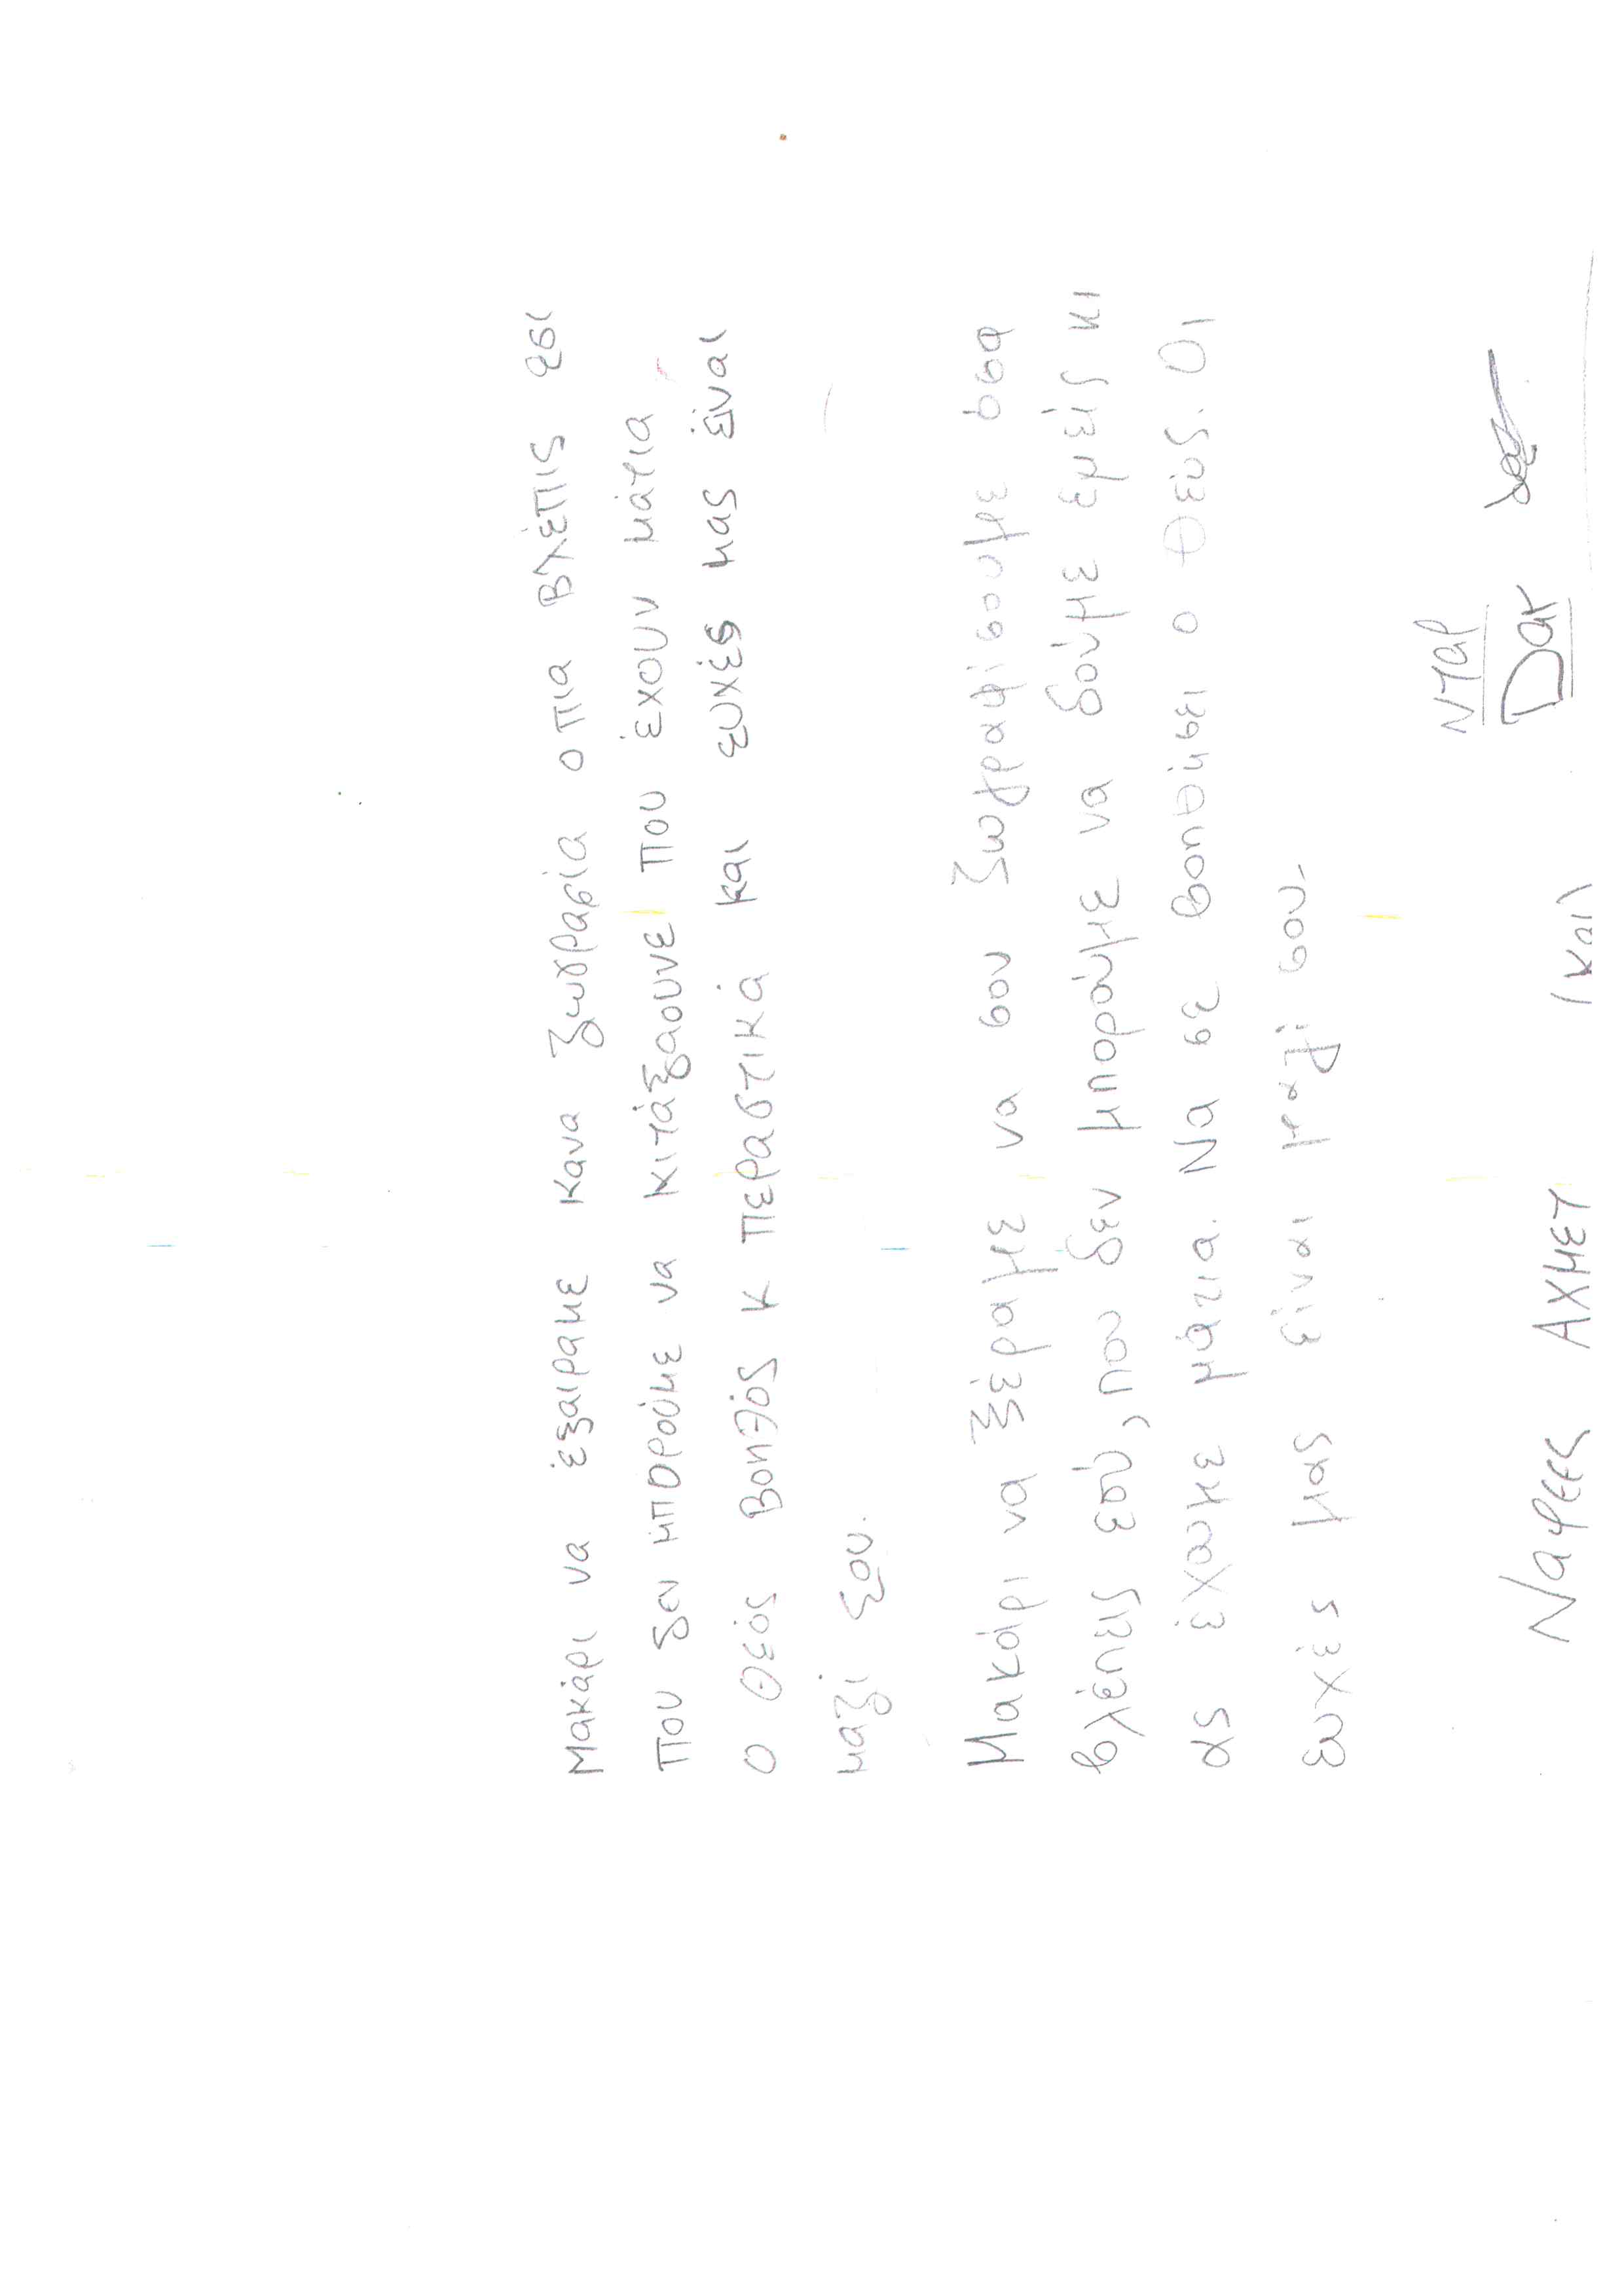 Μακάρι να έξαιραμε κανα ζωγρασία οπια βλέπις εσι
που δεν μπορούμε να κιτάξαουνε που έχουν μάτια
ο θεός βοηθός κ περαστικά και ευχές μας είναι
μαζί σου.
Μακάρι να ξέραμε να σου ζωγραφίσουμε όσα
βλέπεις εσύ, που δεν μπορούμε να δούμε εμείς κι
ας έχουμε μάτια. Να σε βοηθήσει ο Θεός. Οι
ευχές μας είναι μαζί σου.
νταρ
Ναφεες ΑΧΜΕΤ (και) Dar